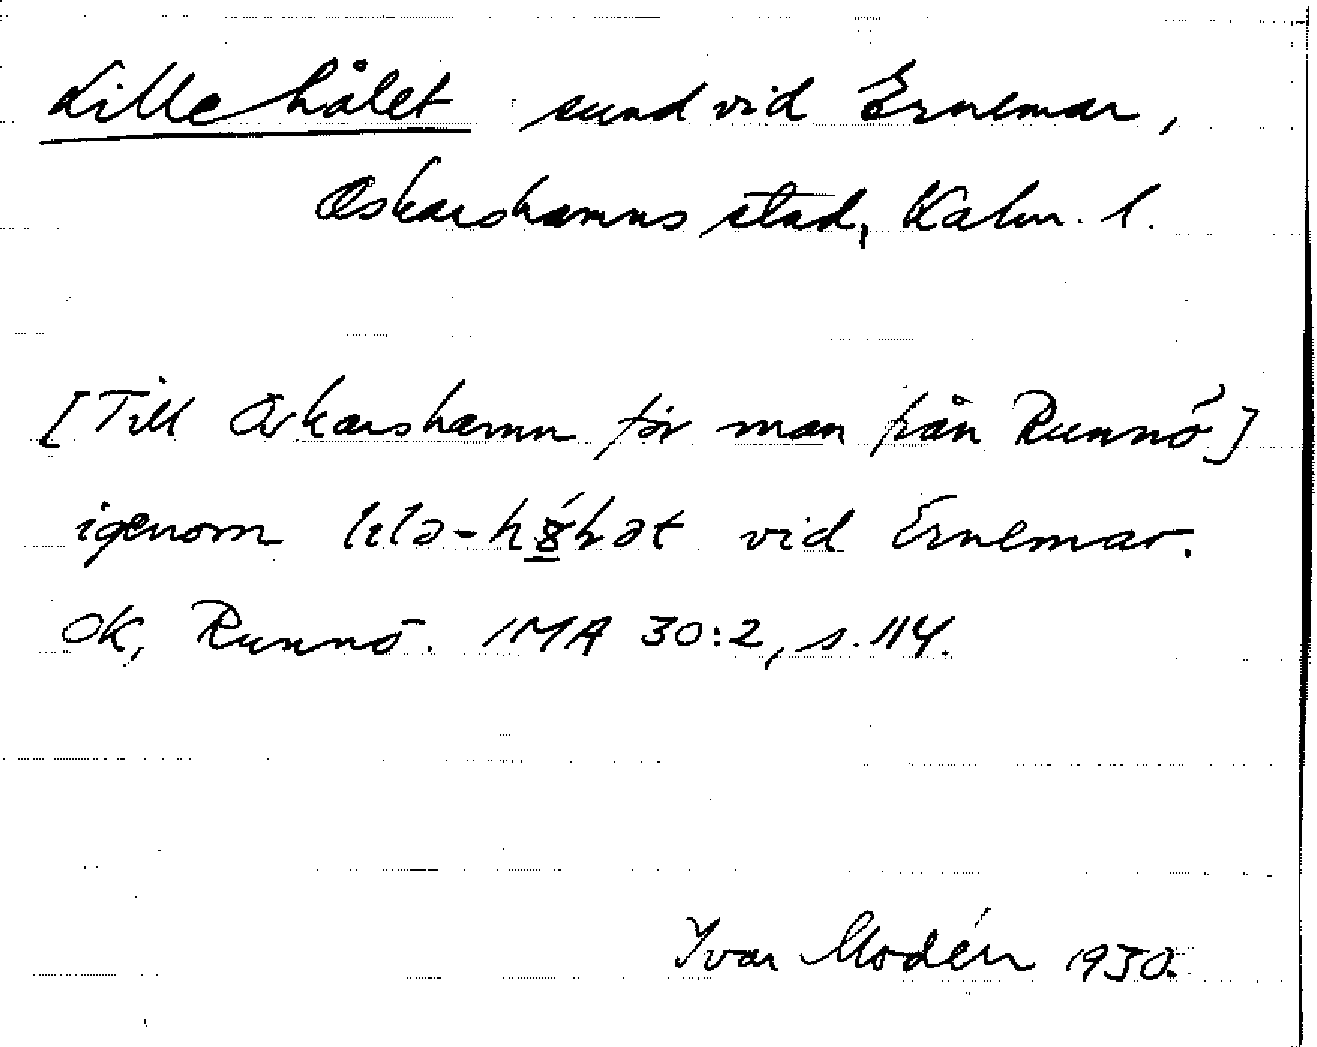 Lille hålet sund vid Ernemar,
Oskarshamns stad, Kalm. l.
[Till Oskarshamn för man från Runnö]
igenom vid Ernemar.
OK, Runnö. IMA 30:2, s. 114.
Ivar Modén 1930.